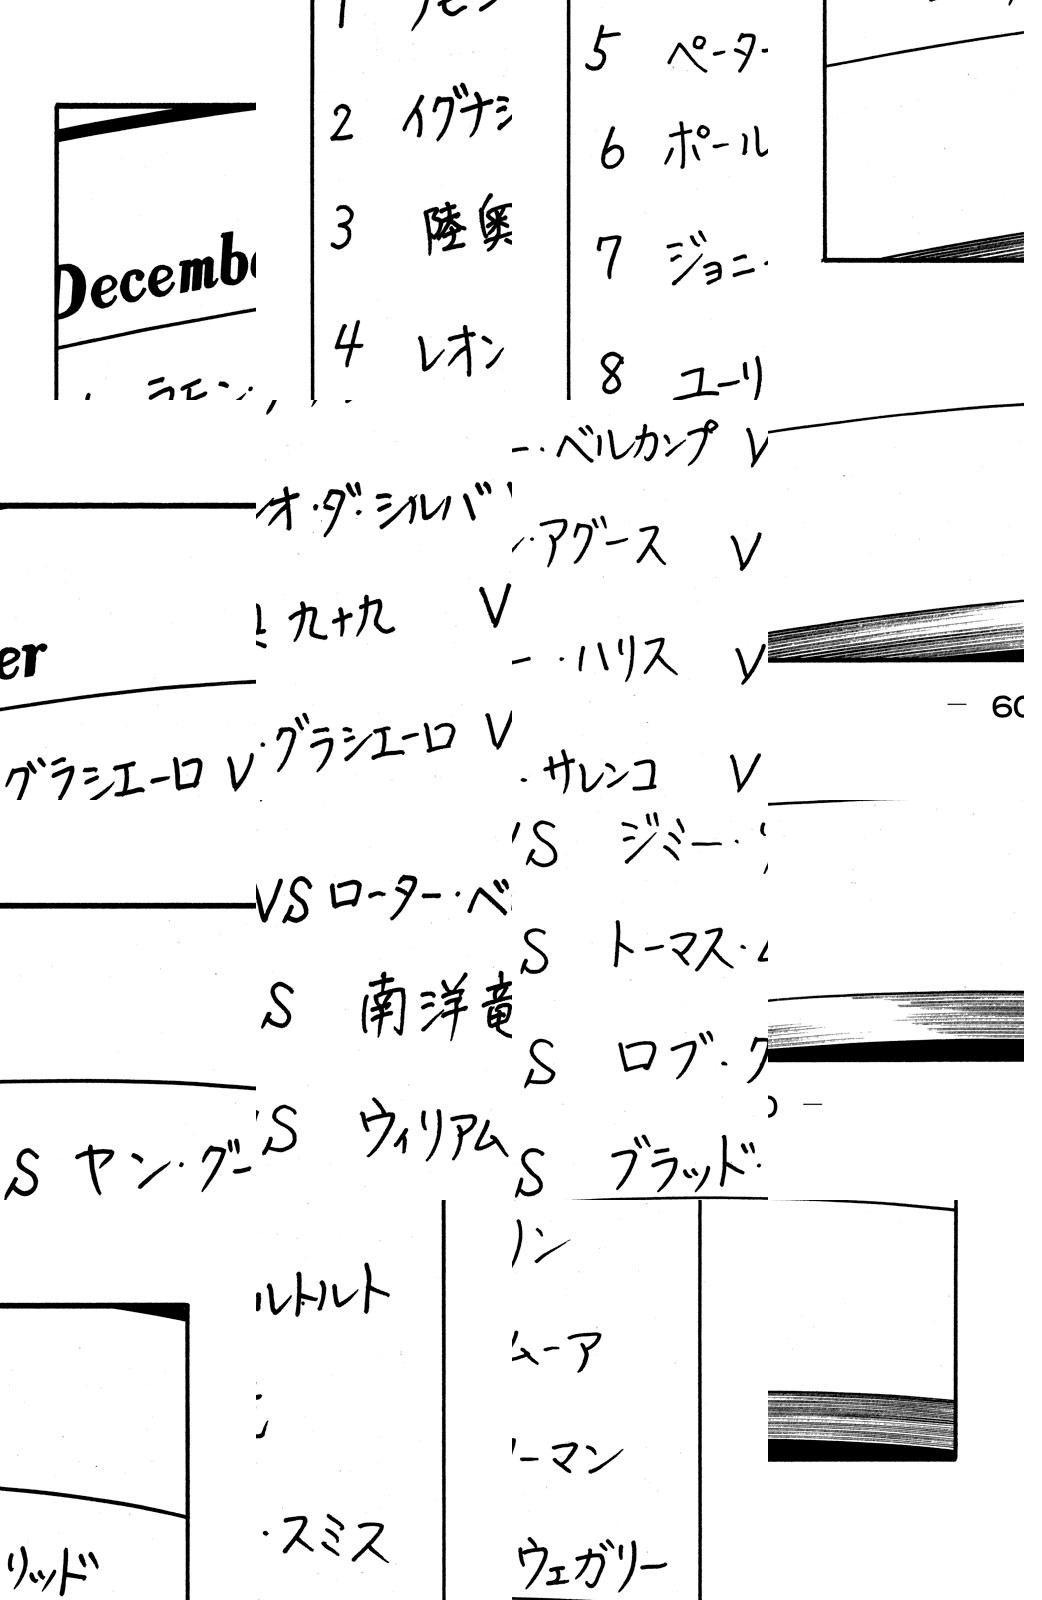 ペータ
5
イグナシ
2
6 ポール
3 陸奥
Decemb
7 ジョニ・
4 レオン
8 ユーリ
ラモン・
ー・ベルカンプ V
オ・ダ・シルバ
・アグース V
九十九 V
er
ー・ハリス V
− 60
・グラシエーロ V
グラシエーロ V
・サレンコ V
S ジミー・
VS ローター・ベ
S トーマス・
S 南洋竜
S ロブ・ク
0 −
S ウィリアム
S ヤン・グー
S ブラッド・
ン
ルトルト
ムーア
ーマン
・スミス
リッド
ウェガリー